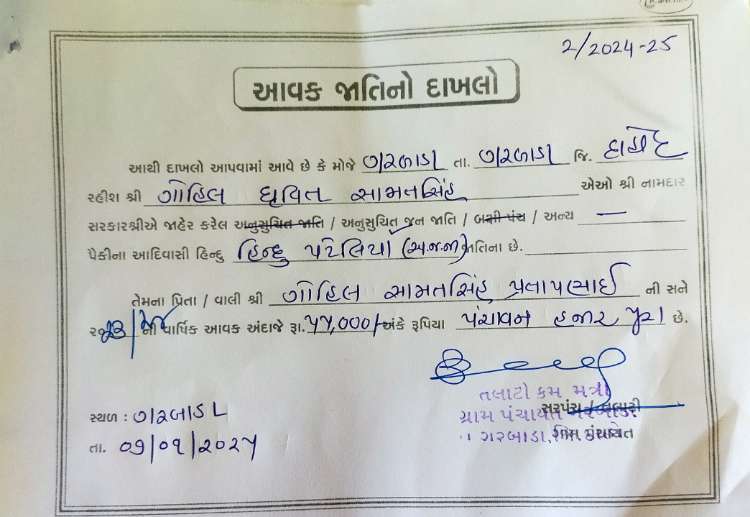 2/2024-25
આવક જાતિનો દાખલો
આથી દાખલો આપવામાં આવે છે કે મોજે ગરબાડા તા. ગરબાડા જિ. દાહોદ
રહીશ શ્રી ગોહિલ ધ્રુવિત સામતસિંહ એઓ શ્રી નામદાર
સરકારશ્રીએ જાહેર કરેલ અનુસુચિત જાતિ / અનુસુચિત જન જાતિ / બક્ષી પંચ / અન્ય —
પૈકીના આદિવાસી હિન્દુ હિન્દુ પટેલિયા (અ.જ.જા) જાતિના છે.
તેમના પિતા / વાલી શ્રી ગોહિલ સામતસિંહ પ્રતાપભાઈ ની સને
ની વાર્ષિક આવક અંદાજે રૂા. ૫૫,000/- અંકે રૂપિયા પંચાવન હજાર પુરા છે.
તલાટી કમ મંત્રી
સ્થળ : ગરબાડા ગ્રામ પંચાયત સરપંચ / તલાટી
તા. ૦૭/૦૧/૨૦૨૫ ગરબાડા,